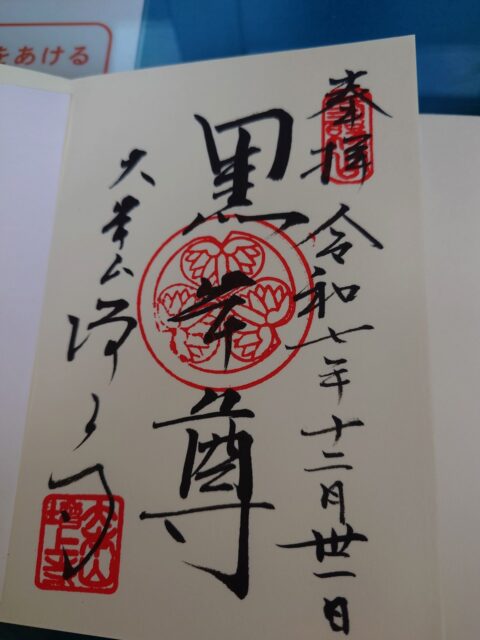 をあける
奉拝 令和七年十二月卅一日
黒本尊
大本山増上寺
大本山
増上寺